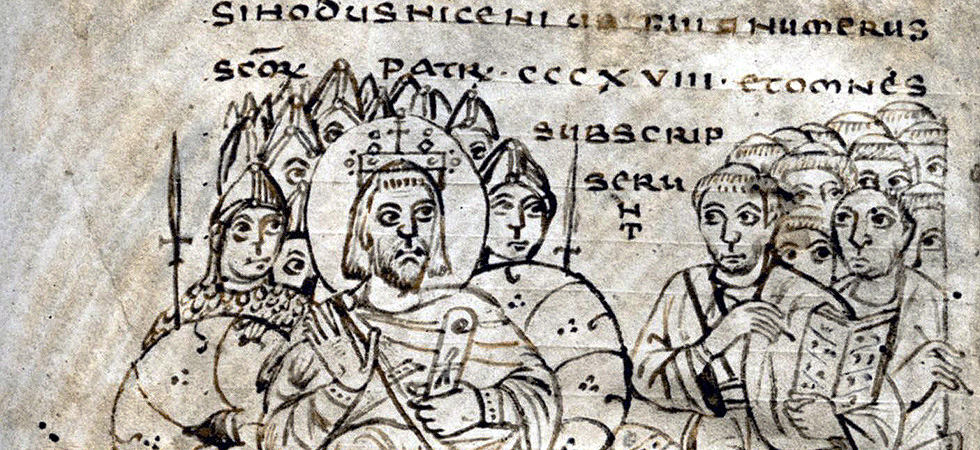 SINODUS NICENI NUMERUS
SCOR PATR · CCCXVIII · ET OMNES
SUBSCRIP
SERU
N
T